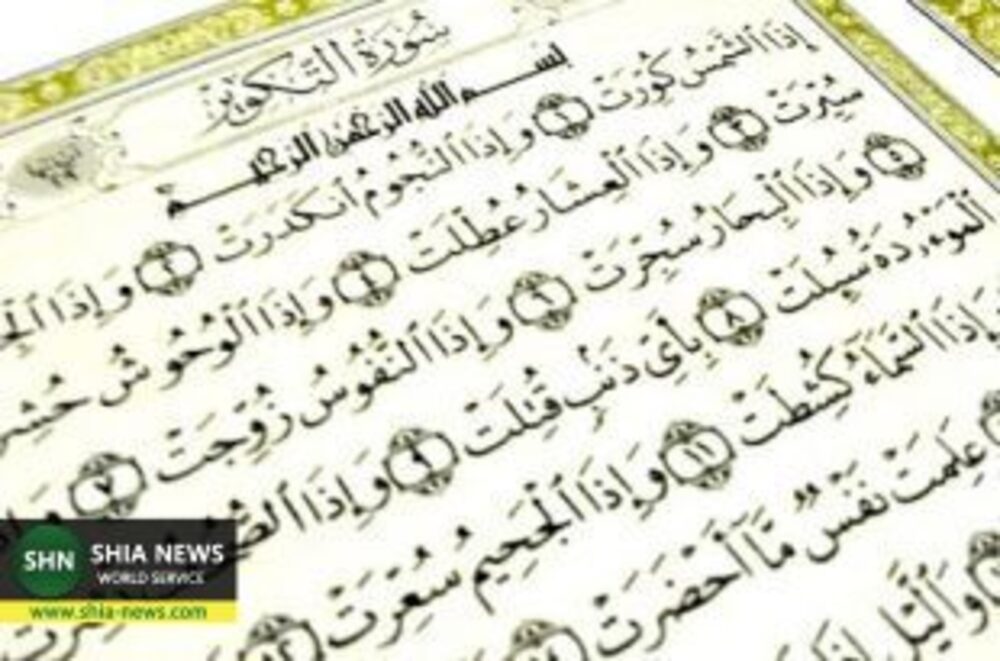 سُورَةُ التَّكْوِيرِ
بِسْمِ اللَّهِ الرَّحْمَٰنِ الرَّحِيمِ
إِذَا ٱلشَّمْسُ كُوِّرَتْ ١ وَإِذَا ٱلنُّجُومُ ٱنكَدَرَتْ ٢ وَإِذَا
سُيِّرَتْ ٣ وَإِذَا ٱلْعِشَارُ عُطِّلَتْ ٤ وَإِذَا ٱلْوُحُوشُ
٥ وَإِذَا ٱلْبِحَارُ سُجِّرَتْ ٦ وَإِذَا ٱلنُّفُوسُ زُوِّجَتْ ٧
ٱلْمَوْءُۥدَةُ سُئِلَتْ ٨ بِأَىِّ ذَنۢبٍ قُتِلَتْ ٩ وَإِذَا
وَإِذَا ٱلسَّمَآءُ كُشِطَتْ ١١ وَإِذَا ٱلْجَحِيمُ سُعِّرَتْ ١٢
عَلِمَتْ نَفْسٌ مَّآ أَحْضَرَتْ ١٤
وَٱلَّيْلِ
SHN SHIA NEWS
WORLD SERVICE
www.shia-news.com